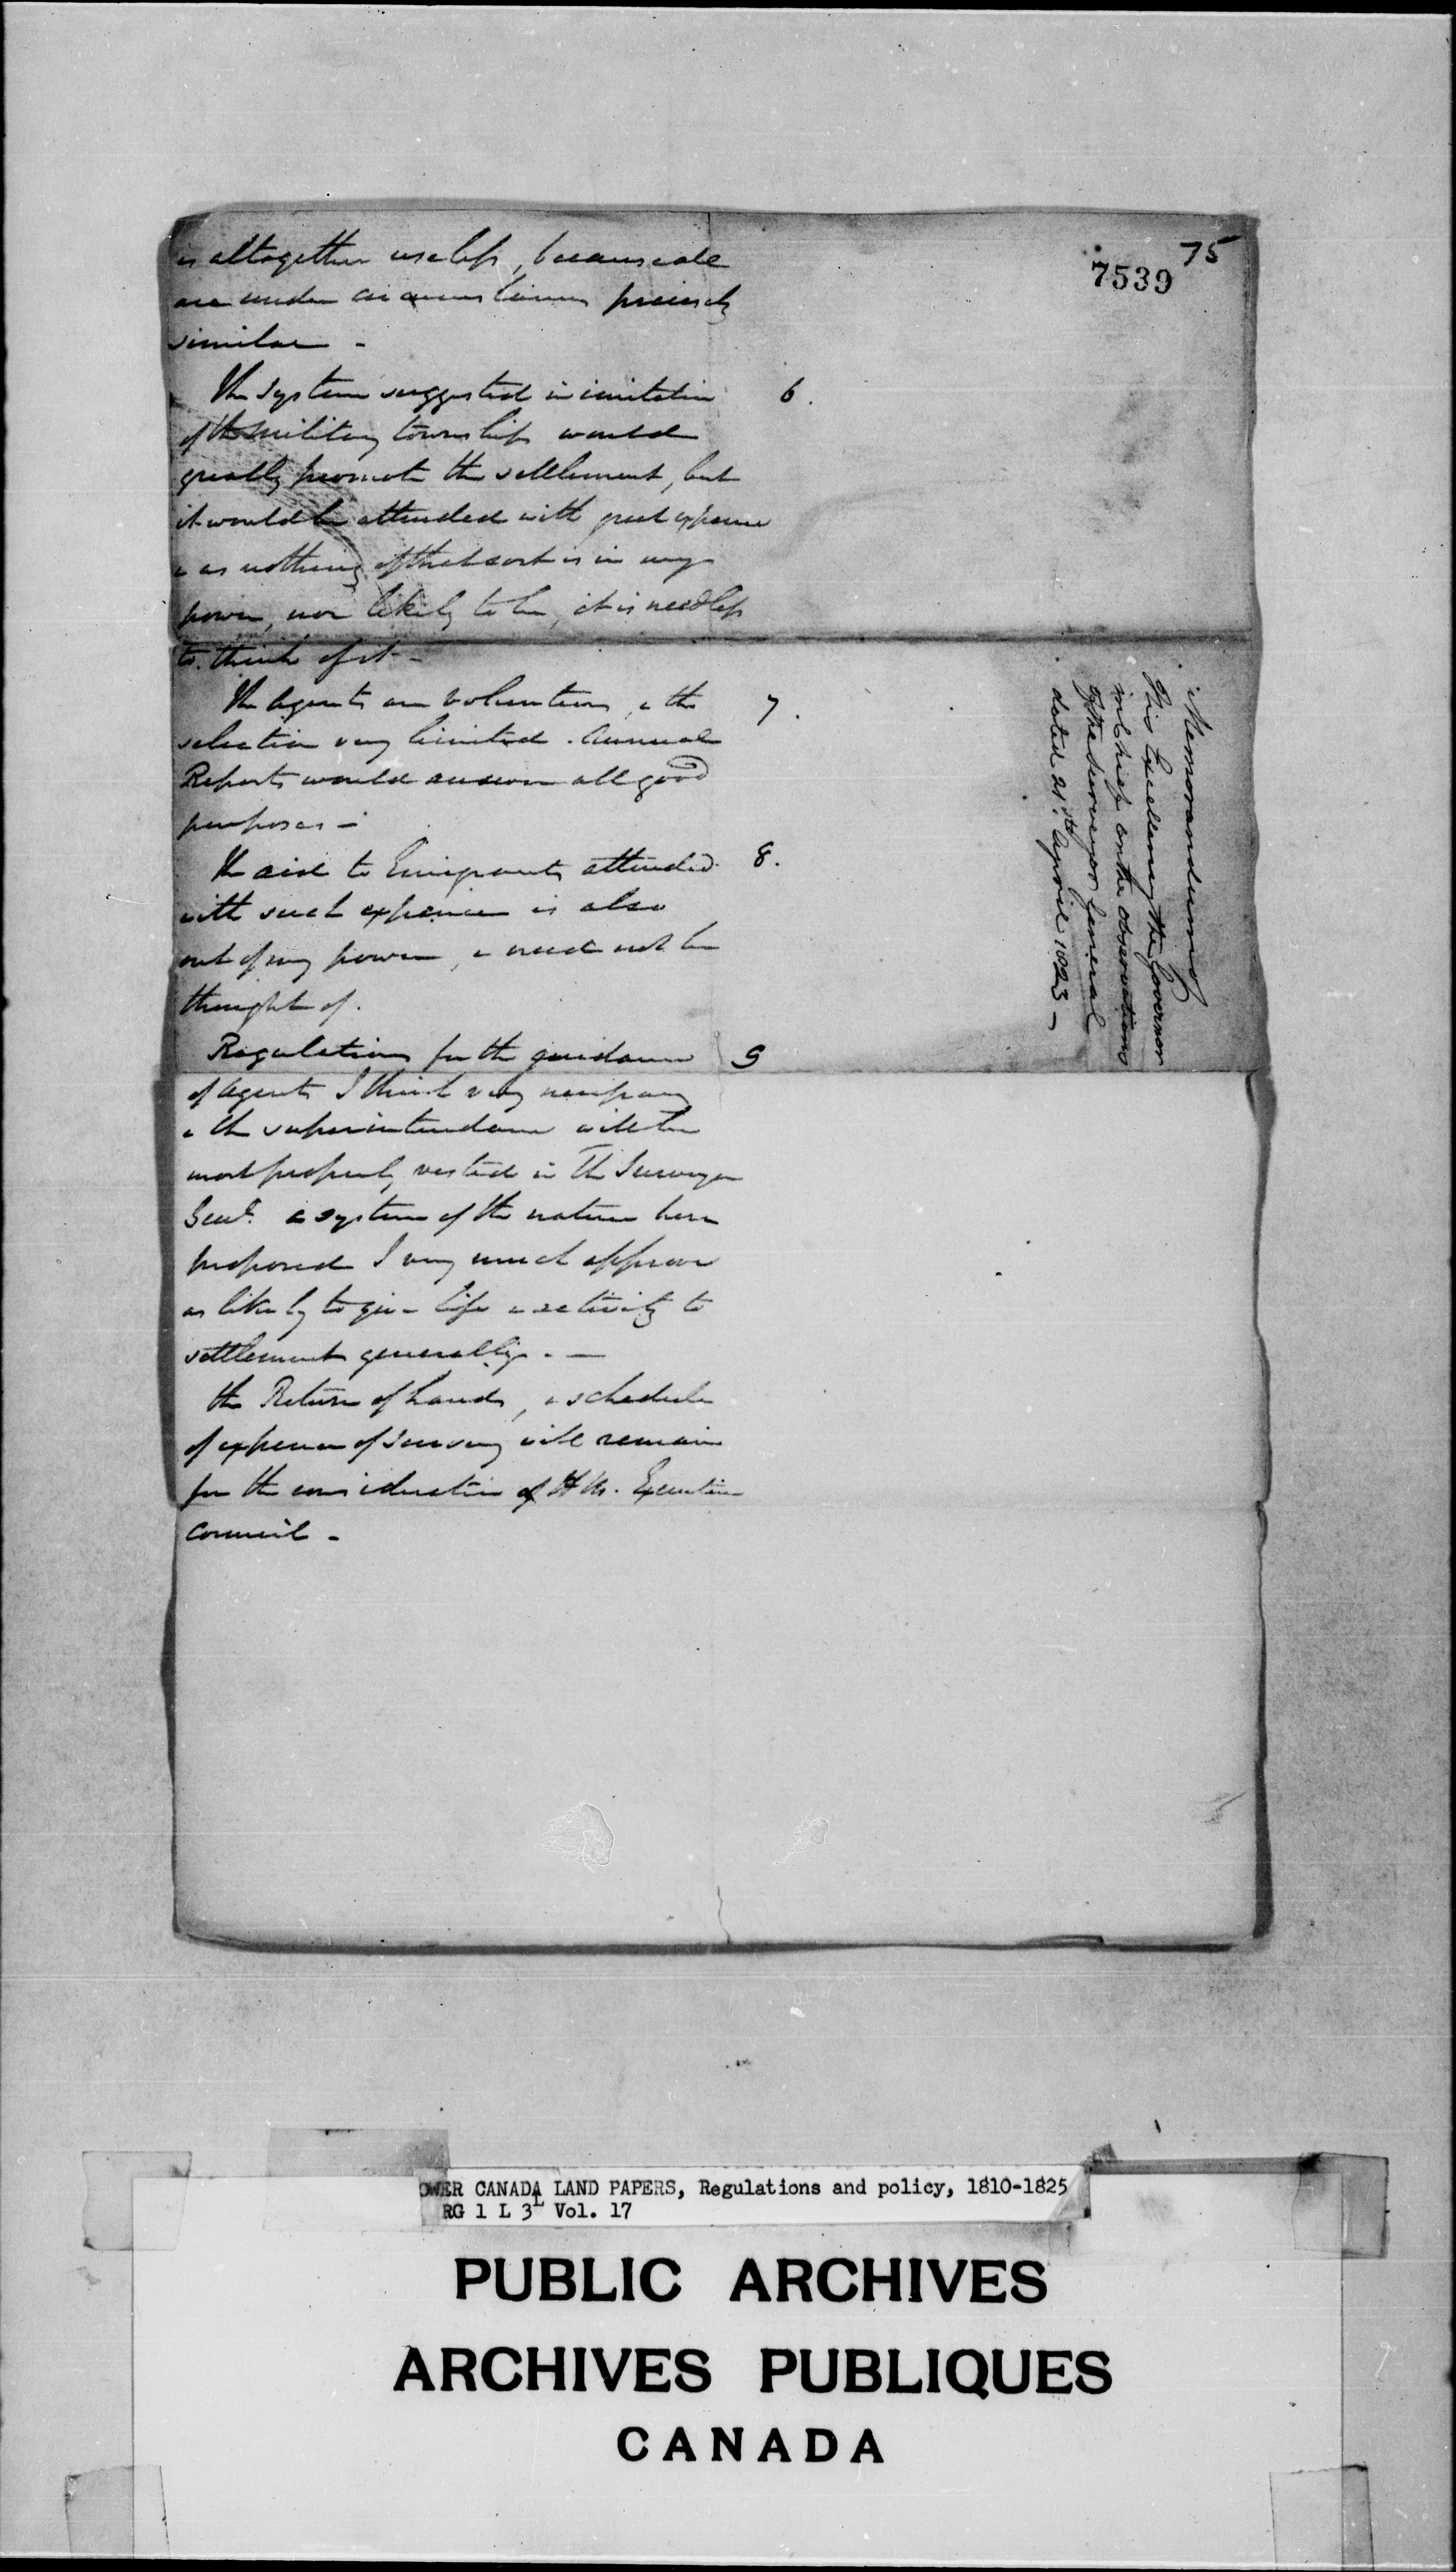 75
7539
is altogether useless, because all
are under circumstances precisely
similar -
The system suggested in imitation 6.
of the Military townships would
greatly promote the settlement, but
it would be attended with great expense
& as nothing of that sort is in my
power, nor likely to be, it is needless
to think of it -
The Agents are volunteers, & the 7.
selection very limited. Annual
Reports would answer all good
purposes -
The aid to Emigrants attended 8.
with such expense is also
out of my power, & need not be
thought of.
Regulations for the guidance 9
of Agents I think very necessary
& the superintendance will be
most properly vested in The Surveyor
Genl. a system of the nature here
proposed I very much approve
as likely to give life & activity to
settlement generally. -
the Return of Lands, & schedule
of expense of Survey will remain
for the consideration of H M. Executive
Council -
Memorandums
of His Excellency the Governor
in Chief on the observations
of the Surveyor General
dated 21st April 1823 -
OWER CANADA LAND PAPERS, Regulations and policy, 1810-1825
RG 1 L 3L Vol. 17
PUBLIC ARCHIVES
ARCHIVES PUBLIQUES
CANADA